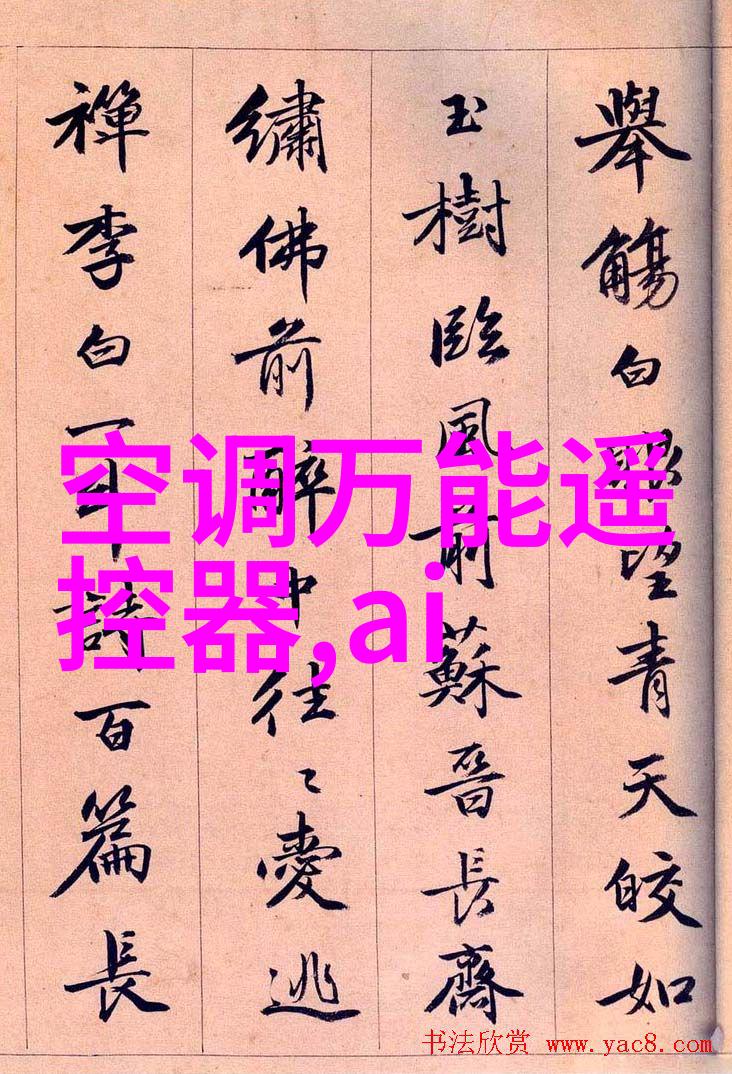 舉觴白眼望青天皎如
玉樹臨風前蘇晉長齋
繡佛前醉中往〻愛逃
禪李白一斗詩百篇長
空调万能遥
控器,ai
书法欣赏 www.yac8.com